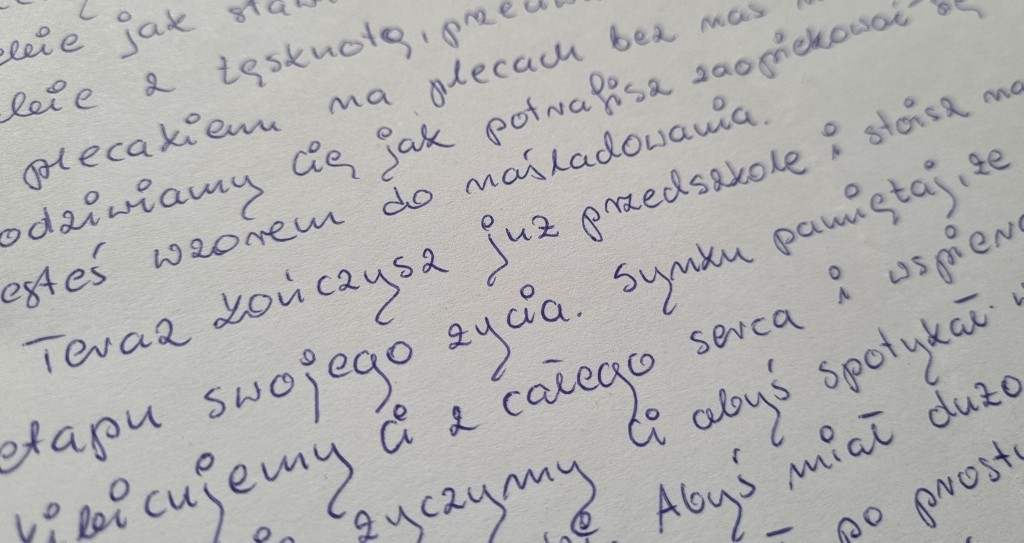 jak
z tęsknotą, 
plecakiem na plecach bez nas
odziwiamy cię jak potrafisz zaopiekować się
esteś wzorem do naśladowania.
Teraz kończysz już przedszkole i stoisz na
etapu swojego życia. Synku pamiętaj, że
kibicujemy Ci z całego serca i wspiera
życzymy Ci abyś spotykał
Abyś miał dużo
po prostu